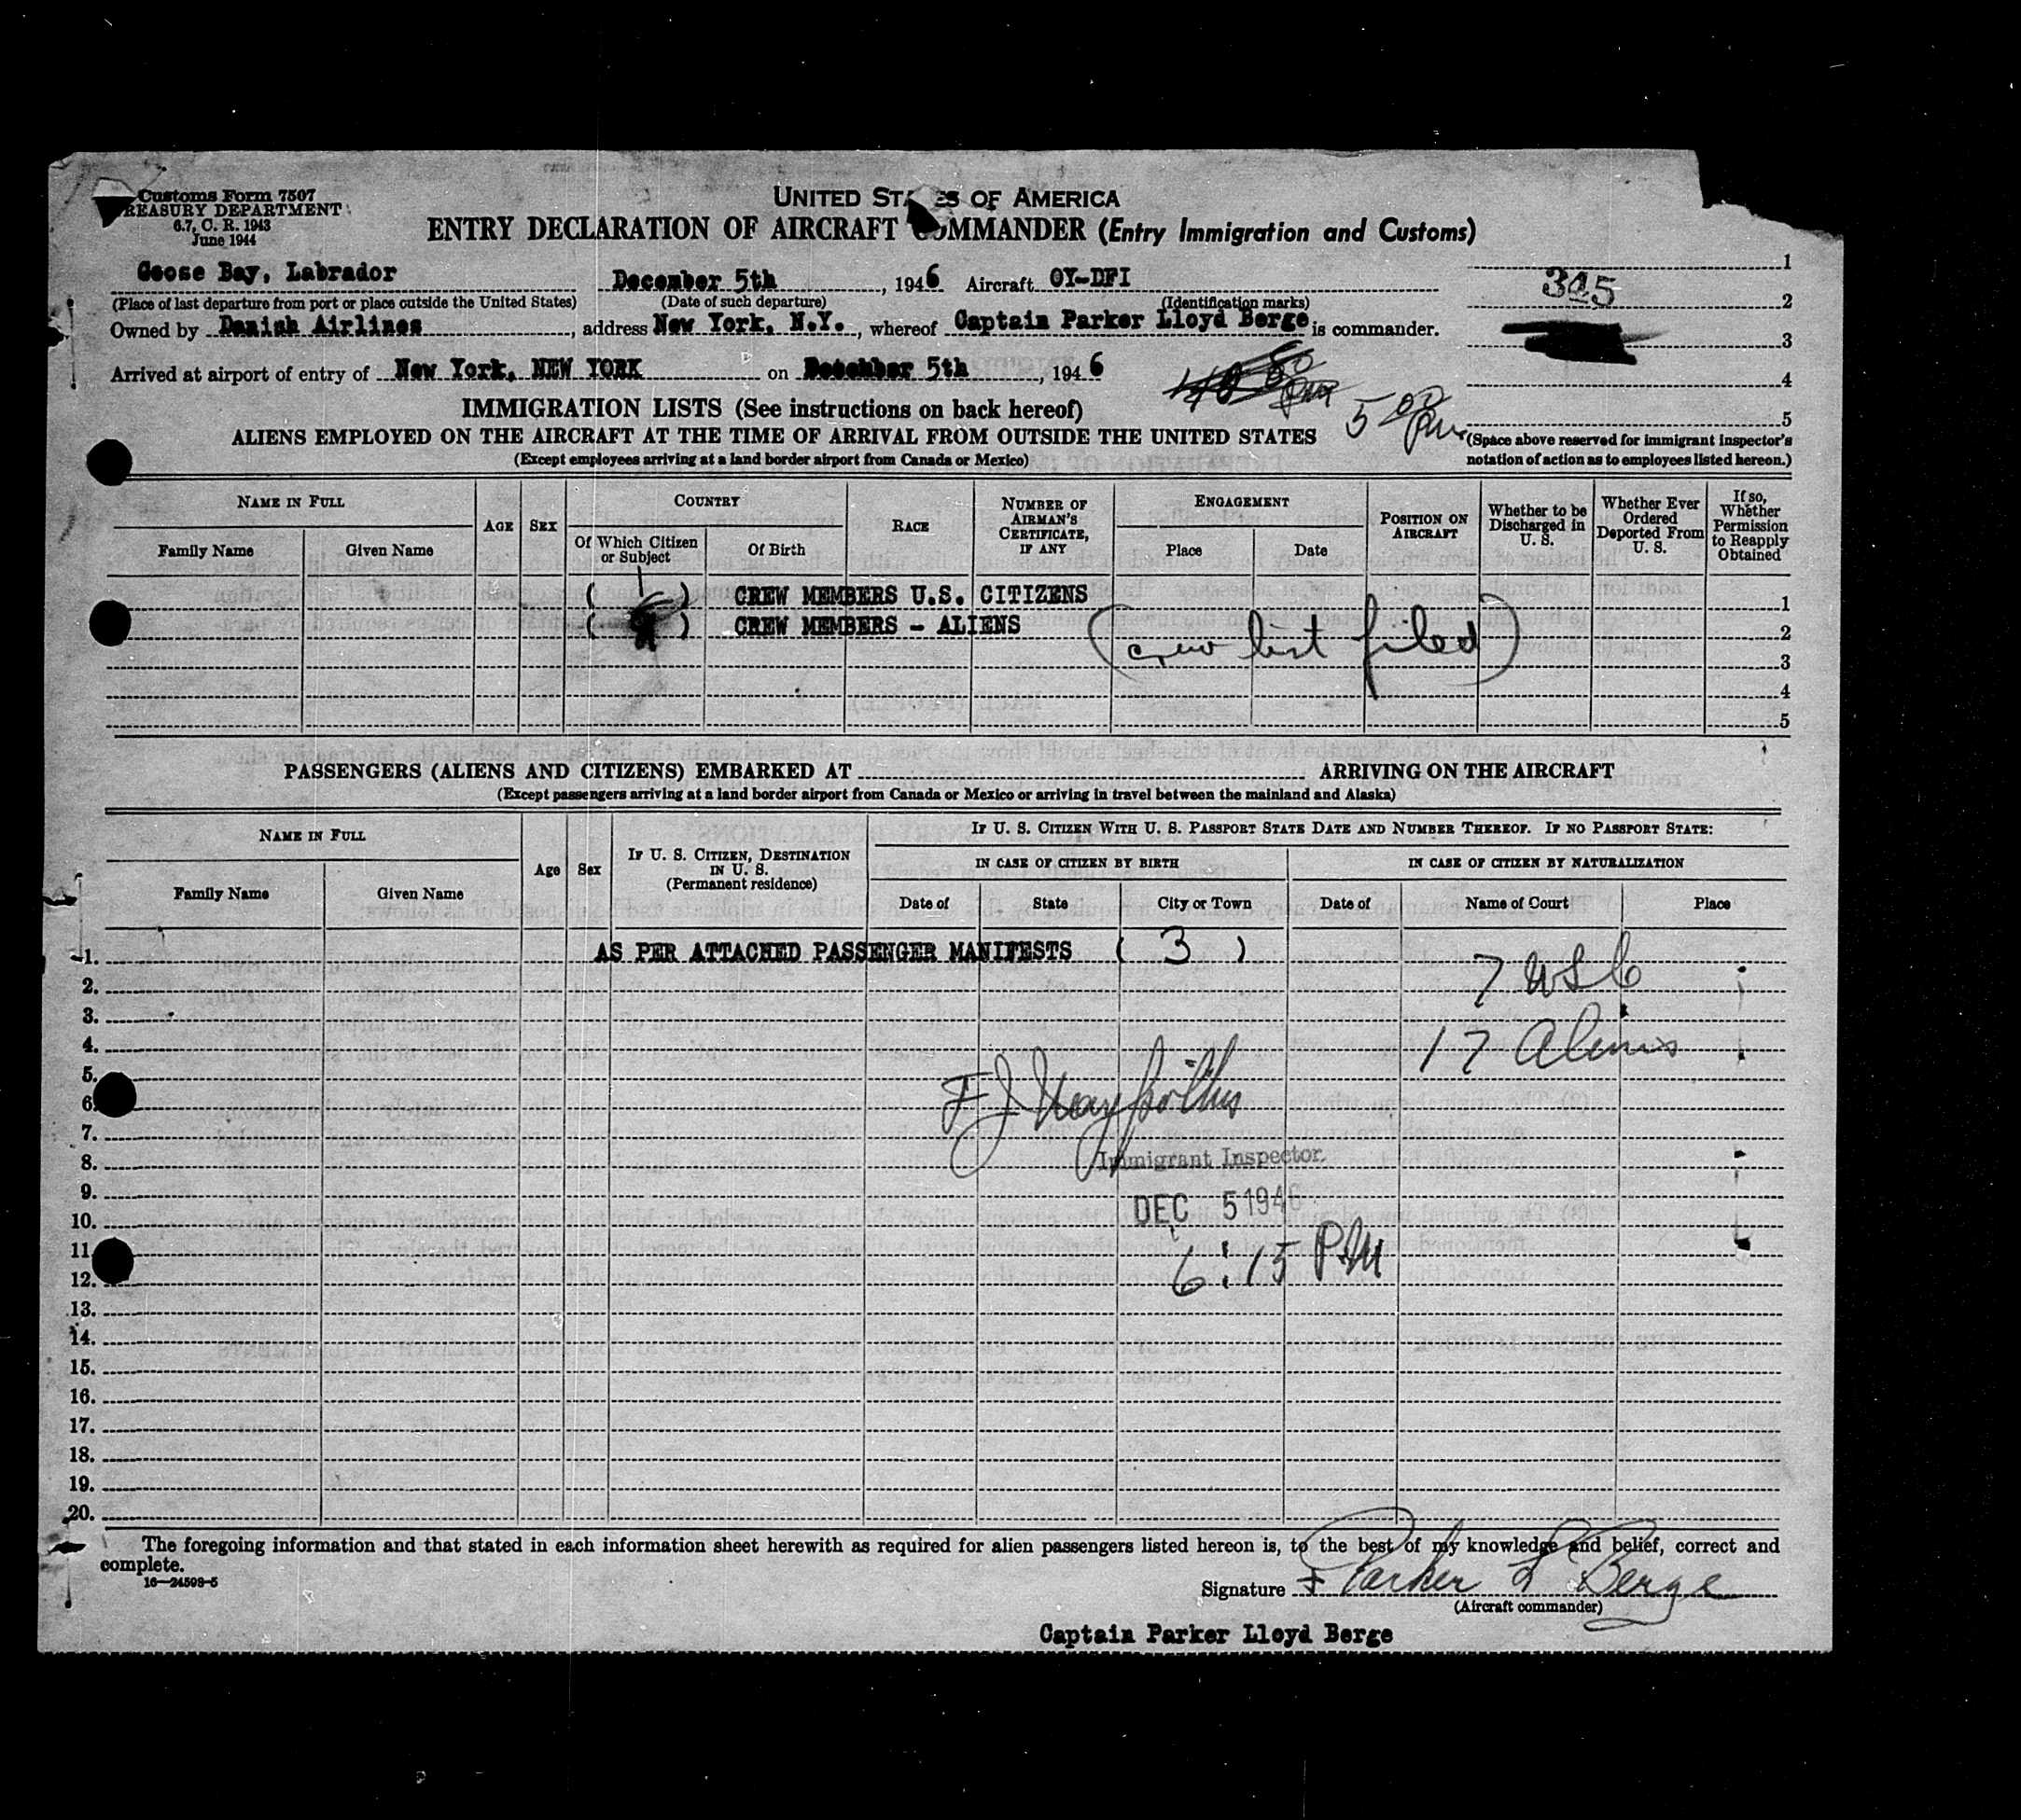 Customs Form 7507
TREASURY DEPARTMENT
6.7, C. R. 1943
June 1944
UNITED STATES OF AMERICA
ENTRY DECLARATION OF AIRCRAFT COMMANDER (Entry Immigration and Customs)
Goose Bay, Labrador December 5th, 1946 Aircraft OY-DFI
(Place of last departure from port or place outside the United States) (Date of such departure) (Identification marks)
Owned by Danish Airlines, address New York, N.Y., whereof Captain Parker Lloyd Berge is commander.
Arrived at airport of entry of New York, NEW YORK on December 5th, 1946
5 00 Pm
1
345
2
3
4
5
(Space above reserved for immigrant inspector's
notation of action as to employees listed hereon.)
IMMIGRATION LISTS (See instructions on back hereof)
ALIENS EMPLOYED ON THE AIRCRAFT AT THE TIME OF ARRIVAL FROM OUTSIDE THE UNITED STATES
(Except employees arriving at a land border airport from Canada or Mexico)
NAME IN FULL
Family Name
Given Name
AGE
SEX
COUNTRY
Of Which Citizen or Subject
Of Birth
RACE
NUMBER OF AIRMAN'S CERTIFICATE, IF ANY
ENGAGEMENT
Place
Date
POSITION ON AIRCRAFT
Whether to be Discharged in U. S.
Whether Ever Ordered Deported From U. S.
If so, Whether Permission to Reapply Obtained
( ) CREW MEMBERS U.S. CITIZENS 1
( 9 ) CREW MEMBERS - ALIENS 2
(crew list filed)
3
4
5
PASSENGERS (ALIENS AND CITIZENS) EMBARKED AT ARRIVING ON THE AIRCRAFT
(Except passengers arriving at a land border airport from Canada or Mexico or arriving in travel between the mainland and Alaska)
NAME IN FULL
Family Name
Given Name
Age
Sex
IF U. S. CITIZEN, DESTINATION IN U. S.
(Permanent residence)
IF U. S. CITIZEN WITH U. S. PASSPORT STATE DATE AND NUMBER THEREOF. IF NO PASSPORT STATE:
IN CASE OF CITIZEN BY BIRTH
IN CASE OF CITIZEN BY NATURALIZATION
Date of
State
City or Town
Date of
Name of Court
Place
1. AS PER ATTACHED PASSENGER MANIFESTS ( 3 )
7 USC
2.
3.
4. 17 Aliens
5.
6.
7.
8. Immigrant Inspector.
9.
10. DEC 5 1946
11
12. 6:15 P.M
13.
14.
15.
16.
17.
18.
19.
20.
The foregoing information and that stated in each information sheet herewith as required for alien passengers listed hereon is, to the best of my knowledge and belief, correct and
complete.
16—24598-5
Signature Parker L Berge
(Aircraft commander)
Captain Parker Lloyd Berge